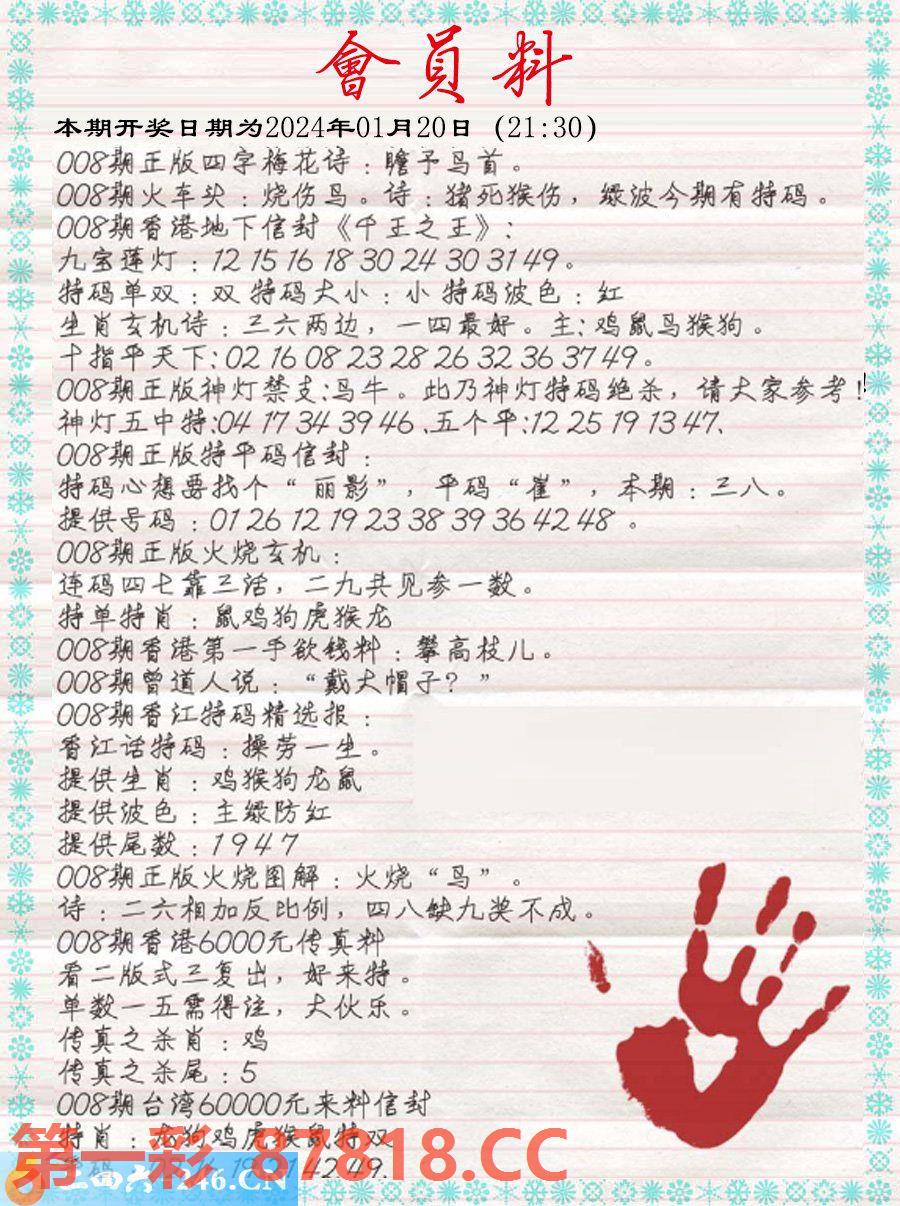 會員料
本期开奖日期为2024年01月20日 (21:30)
008期正版四字梅花诗：瞻予鸟首。
008期火车头：烧伤鸟。诗：猪死猴伤，绿波今期有特码。
008期香港地下信封《千王之王》:
九宝莲灯：12 15 16 18 30 24 30 31 49。
特码单双：双 特码大小：小 特码波色：红
生肖玄机诗：三六两边，一四最好。主: 鸡鼠鸟猴狗。
十指平天下: 02 16 08 23 28 26 32 36 37 49。
008期正版神灯禁支:鸟牛。此乃神灯特码绝杀，请大家参考！
神灯五中特:04 17 34 39 46、五个平:12 25 19 13 47、
008期正版特平码信封：
特码心想要找个“丽影”，平码“崔”，本期：三八。
提供号码：01 26 12 19 23 38 39 36 42 48 。
008期正版火烧玄机：
连码四七靠三活，二九共见参一数。
特单特肖：鼠鸡狗虎猴龙
008期香港第一手欲钱料：攀高枝儿。
008期曾道人说：“戴大帽子？”
008期香江特码精选报：
香江话特码：操劳一生。
提供生肖：鸡猴狗龙鼠
提供波色：主绿防红
提供尾数：1 9 4 7
008期正版火烧图解：火烧“鸟”。
诗：二六相加反比例，四八缺九奖不成。
008期香港6000元传真料
看二版式三复出，好来特。
单数一五需得注，大伙乐。
传真之杀肖：鸡
传真之杀尾：5
008期台湾60000元来料信封
特肖：龙狗鸡虎猴鼠特双
42 49.
第一彩 87818.CC
二四六 246.CN